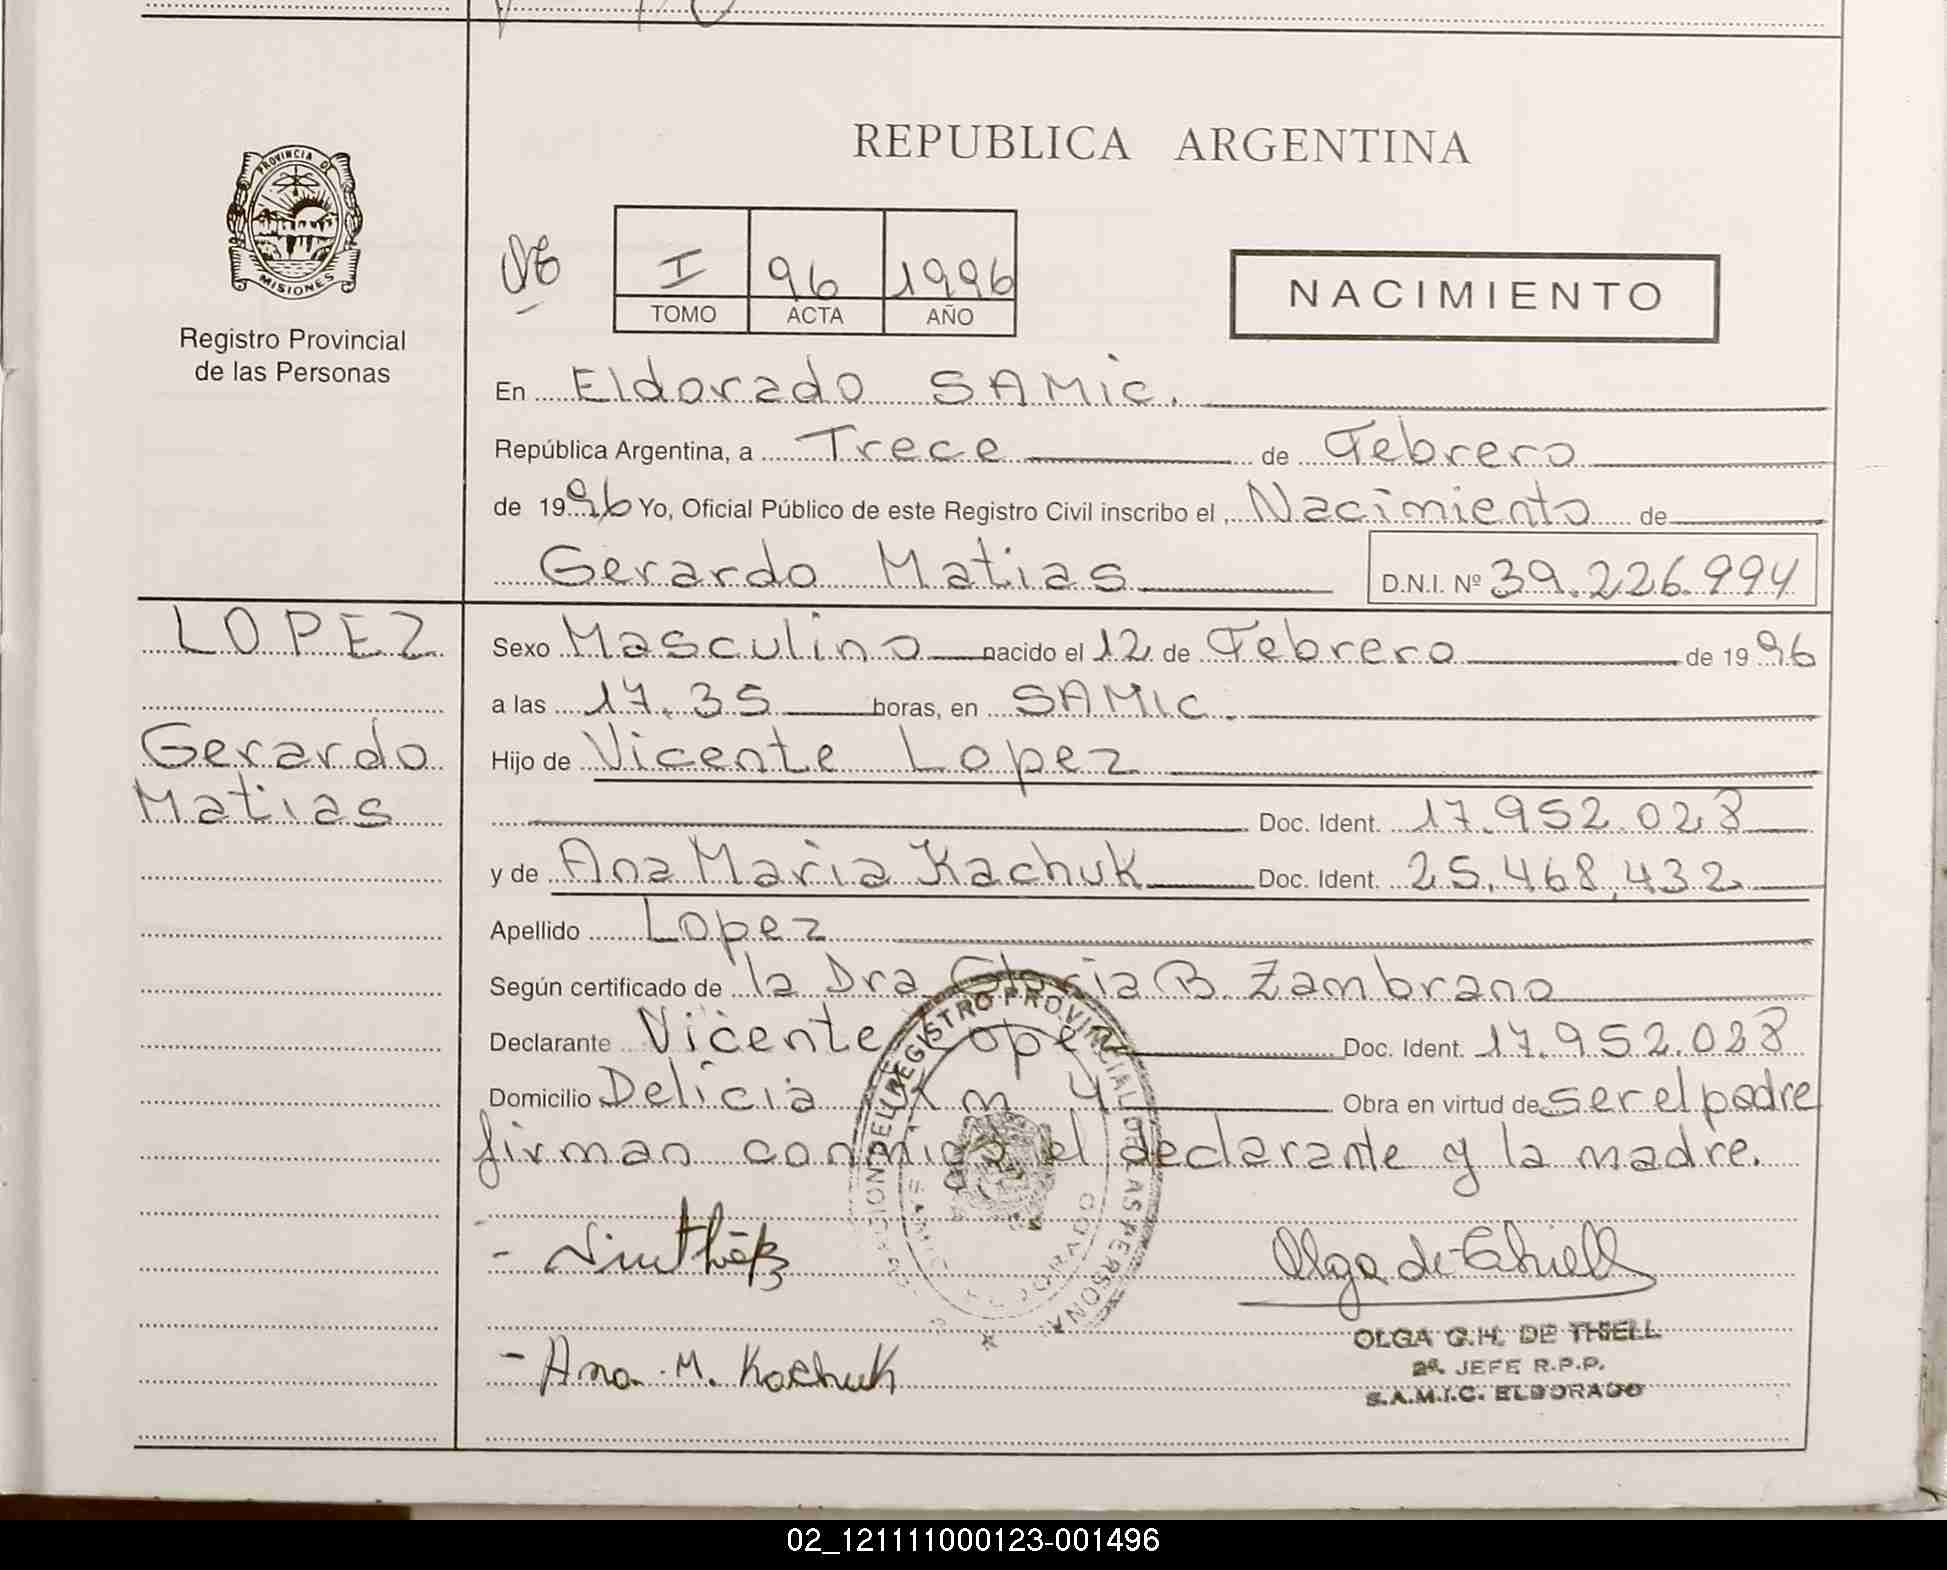 PROVINCIA DE
MISIONES
Registro Provincial
de las Personas
REPUBLICA ARGENTINA
I 96 1996
TOMO ACTA AÑO
NACIMIENTO
En Eldorado SAMIC.
República Argentina, a Trece de Febrero
de 1996 Yo, Oficial Público de este Registro Civil inscribo el, Nacimiento de
Gerardo Matias D.N.I. Nº 39.226.994
LOPEZ
Gerardo
Matias
Sexo Masculino nacido el 12 de Febrero de 1996
a las 17.35 horas, en SAMIC.
Hijo de Vicente Lopez
Doc. Ident. 17.952.028
y de Ana Maria Kachuk Doc. Ident. 25.468.432
Apellido Lopez
Según certificado de la Dra Gloria B. Zambrano
Declarante Vicente Lopez Doc. Ident. 17.952.028
Domicilio Delicia Km 4 Obra en virtud de ser el padre
firman conmigo el declarante y la madre.
REGISTRO PROVINCIAL DE LAS PERSONAS
Olga de Thiell
OLGA G.H. DE THIELL
2º JEFE R.P.P.
S.A.M.I.C. ELDORADO
- Ana M. Kachuk
02_121111000123-001496